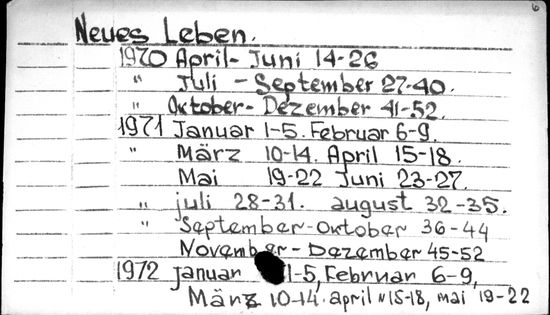 6
Neues Leben.
1970 April - Juni 14-26
" Juli - September 27-40.
" Oktober - Dezember 41-52.
1971 Januar 1-5. Februar 6-9.
" März 10-14. April 15-18.
Mai 19-22 Juni 23-27.
" juli 28-31. august 32-35.
" September-Oktober 36-44
November - Dezember 45-52
1972 januar 1-5, Februar 6-9,
März 10-14. april " 15-18, mai 19-22